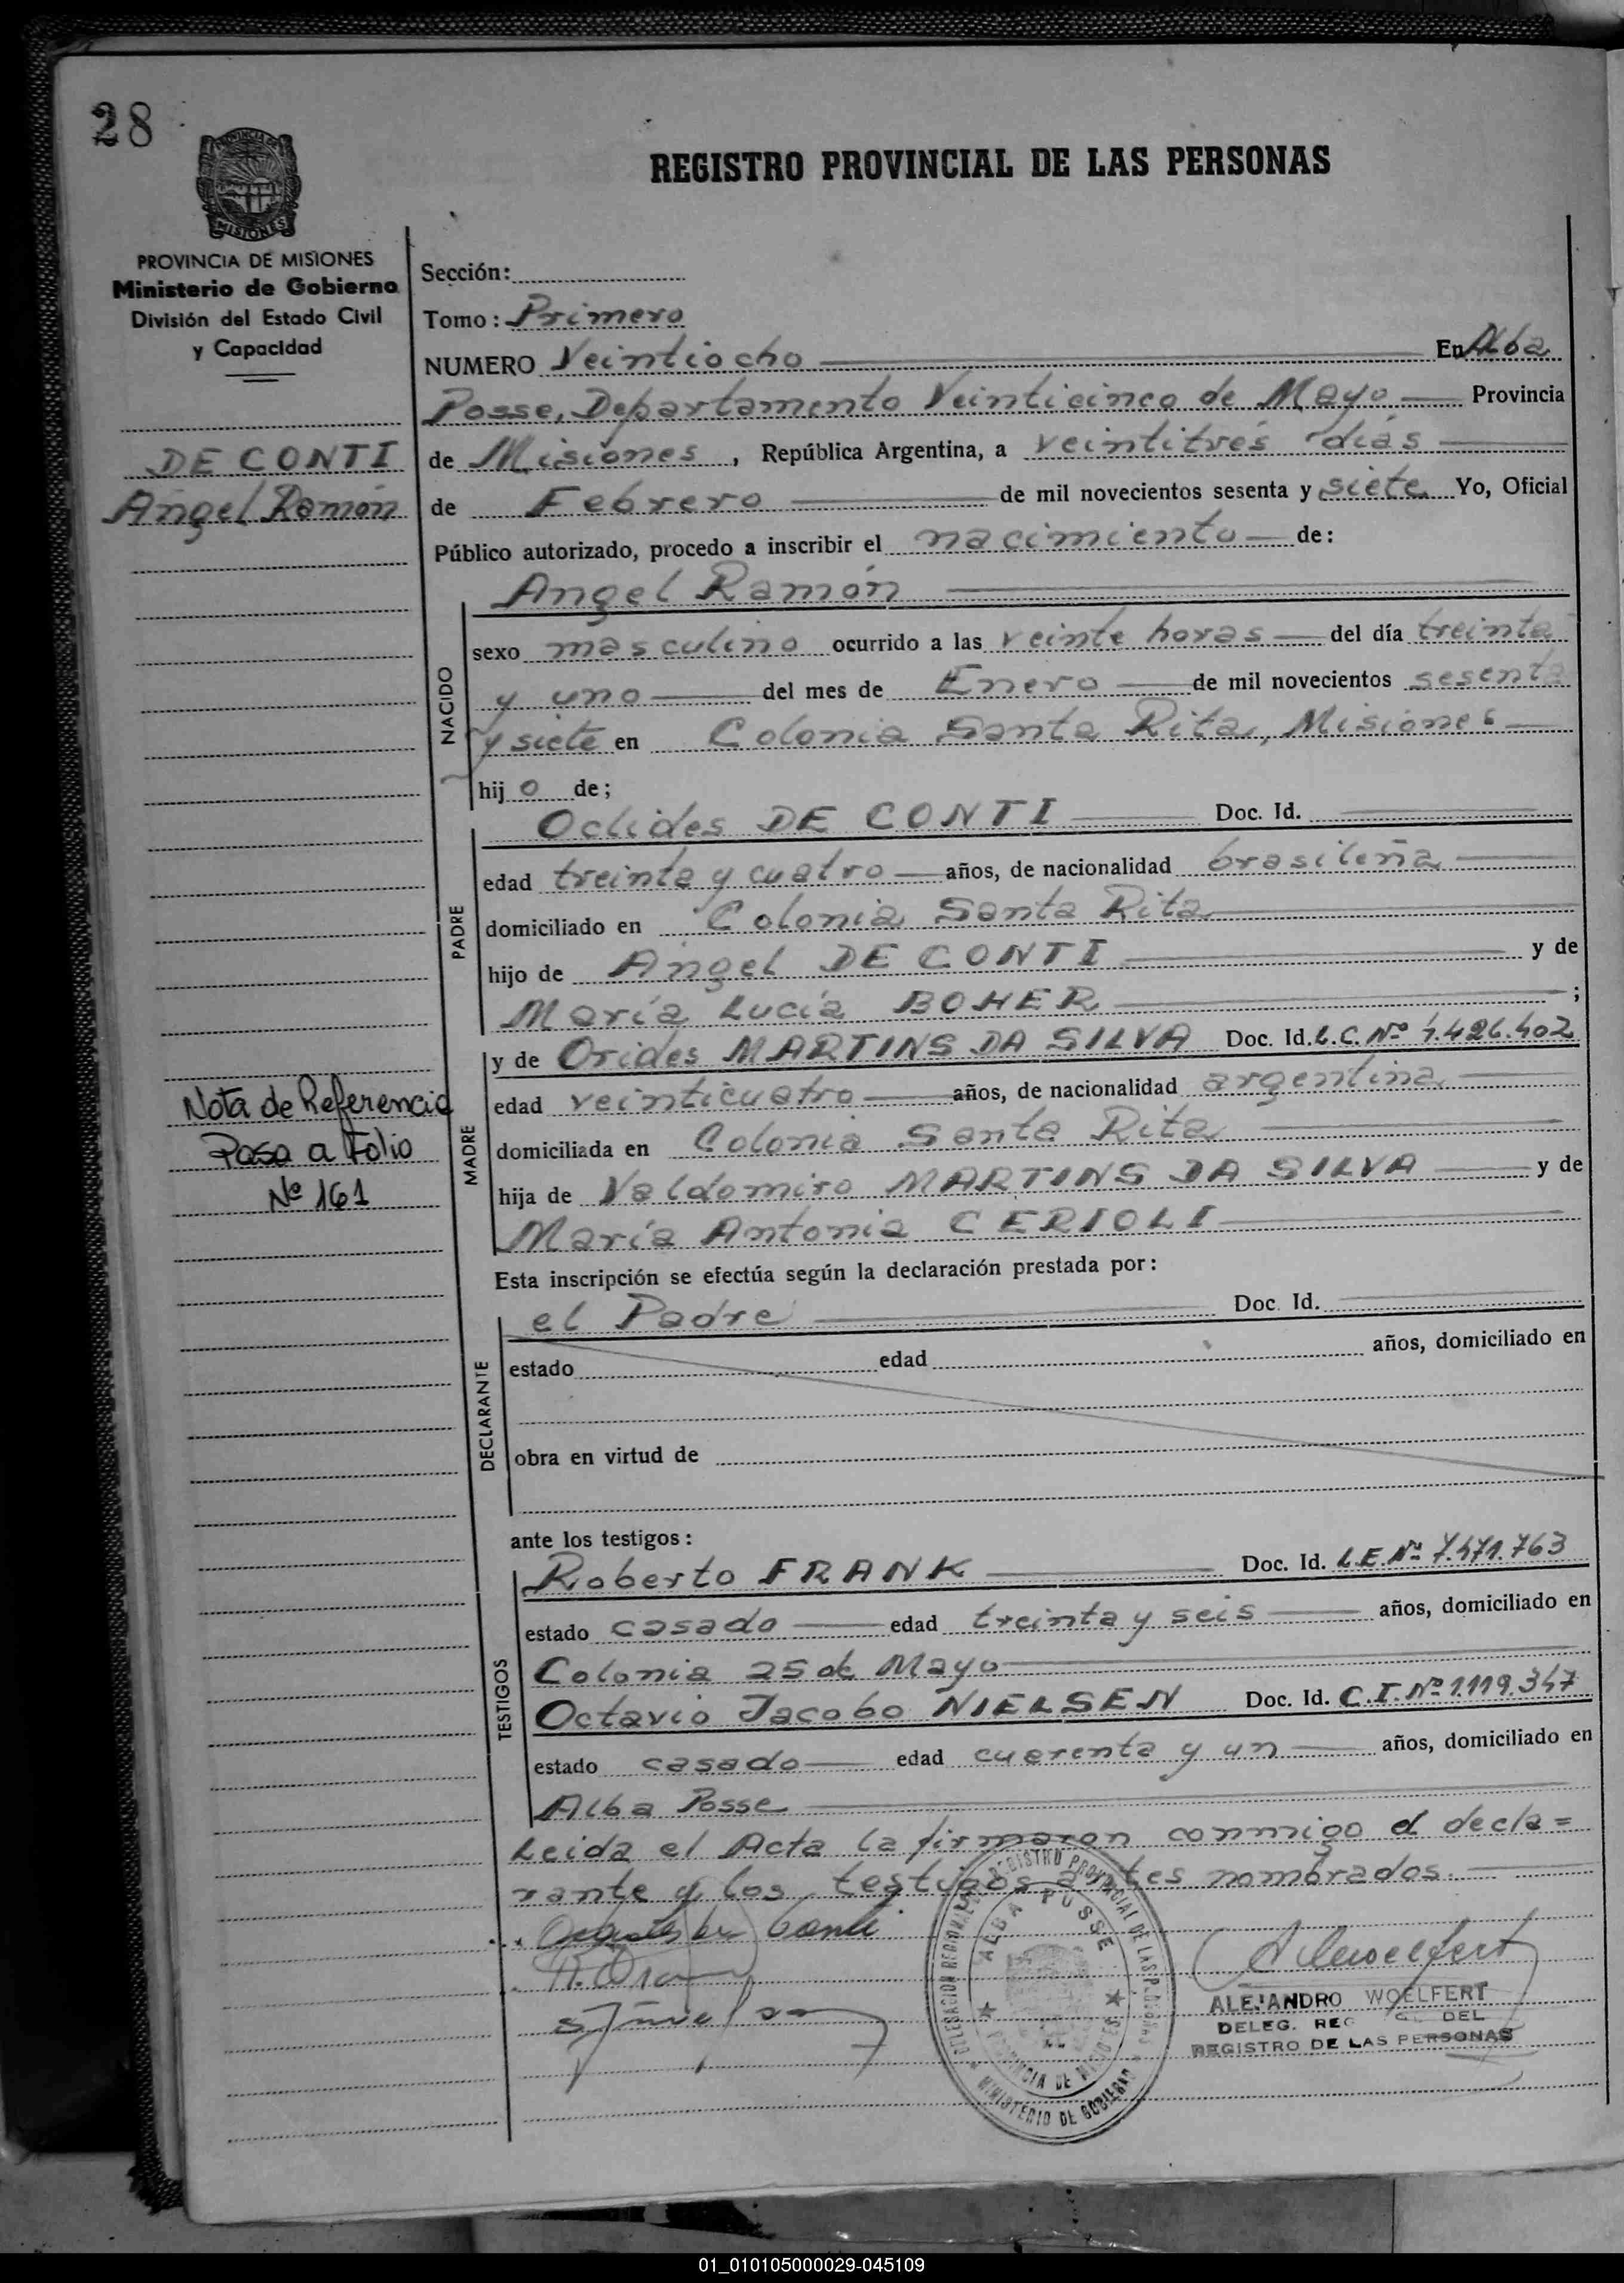 28
REGISTRO PROVINCIAL DE LAS PERSONAS
MISIONES
PROVINCIA DE MISIONES
Ministerio de Gobierno
División del Estado Civil
y Capacidad
DE CONTI
Angel Ramón
Nota de Referencia
Pasa a Folio
Nº 161
Sección:
Tomo: Primero
NUMERO Veintiocho En Alba
Posse, Departamento Veinticinco de Mayo Provincia
de Misiones, República Argentina, a veintitrés días
de Febrero de mil novecientos sesenta y siete Yo, Oficial
Público autorizado, procedo a inscribir el nacimiento de:
Angel Ramón
NACIDO
sexo masculino ocurrido a las veinte horas del día treinta
y uno del mes de Enero de mil novecientos sesenta
y siete en Colonia Santa Rita, Misiones
hij o de;
PADRE
Oclides DE CONTI Doc. Id.
edad treinta y cuatro años, de nacionalidad brasileña
domiciliado en Colonia Santa Rita
hijo de Angel DE CONTI y de
María Lucía BOHER ;
MADRE
y de Orides MARTINS DA SILVA Doc. Id. L.C. Nº 4.426.402
edad veinticuatro años, de nacionalidad argentina
domiciliada en Colonia Santa Rita
hija de Valdomiro MARTINS DA SILVA y de
María Antonia CERIOLI
Esta inscripción se efectúa según la declaración prestada por:
el Padre Doc. Id.
DECLARANTE
estado edad años, domiciliado en
obra en virtud de
ante los testigos:
TESTIGOS
Roberto FRANK Doc. Id. L.E. Nº 7.471.763
estado casado edad treinta y seis años, domiciliado en
Colonia 25 de Mayo
Octavio Jacobo NIELSEN Doc. Id. C.I. Nº 1.119.347
estado casado edad cuarenta y un años, domiciliado en
Alba Posse
Leida el Acta la firmaron conmigo el decla=
rante y los testigos antes nombrados.
DELEGACION REGIONAL REGISTRO PROVINCIAL DE LAS PERSONAS
ALBA POSSE
PROVINCIA DE MISIONES
MINISTERIO DE GOBIERNO
ALEJANDRO WOELFERT
DELEG. REG DEL
REGISTRO DE LAS PERSONAS
01_010105000029-045109